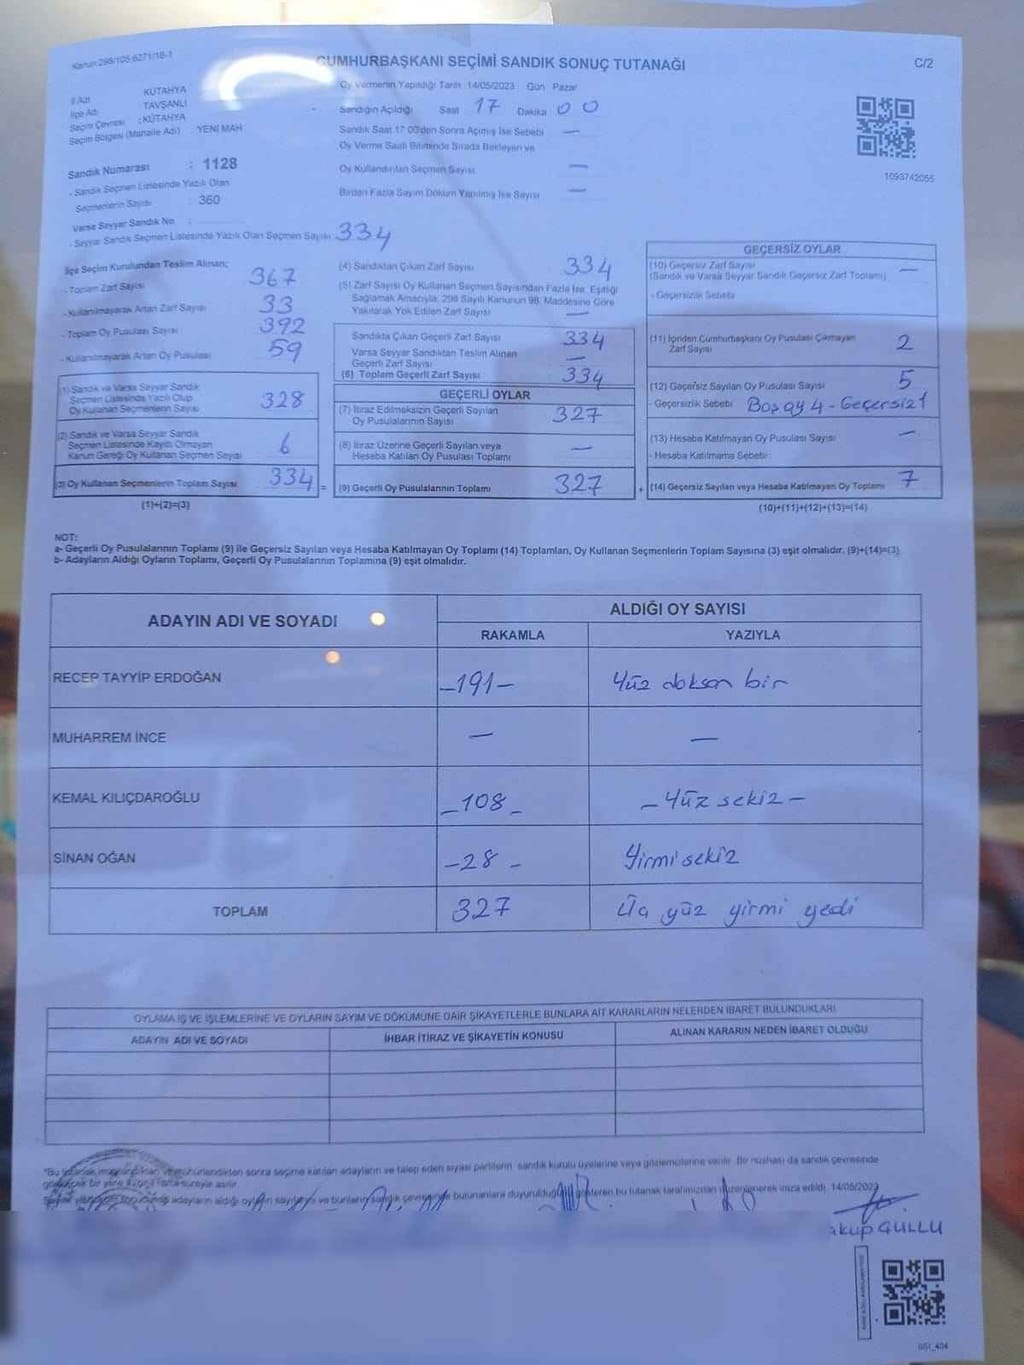 Kanun 298/105 6271/18-1
CUMHURBAŞKANI SEÇİMİ SANDIK SONUÇ TUTANAĞI
C/2
İl Adı KÜTAHYA
İlçe Adı TAVŞANLI
Seçim Çevresi : KÜTAHYA
Seçim Bölgesi (Mahalle Adı) YENİ MAH
Sandık Numarası : 1128
- Sandık Seçmen Listesinde Yazılı Olan
Seçmenlerin Sayısı 360
Varsa Seyyar Sandık No
- Seyyar Sandık Seçmen Listesinde Yazılı Olan Seçmen Sayısı 334
Oy Vermenin Yapıldığı Tarih 14/05/2023 Gün Pazar
Sandığın Açıldığı Saat 17 Dakika 00
Sandık Saat 17:00'den Sonra Açılmış İse Sebebi —
Oy Verme Saati Bitiminde Sırada Bekleyen ve
Oy Kullandırılan Seçmen Sayısı —
Birden Fazla Sayım Döküm Yapılmış İse Sayısı —
1093742055
İlçe Seçim Kurulundan Teslim Alınan;
- Toplam Zarf Sayısı 367
- Kullanılmayarak Artan Zarf Sayısı 33
- Toplam Oy Pusulası Sayısı 392
- Kullanılmayarak Artan Oy Pusulası 59
(1) Sandık ve Varsa Seyyar Sandık
Seçmen Listesinde Yazılı Olup
Oy Kullanan Seçmenlerin Sayısı 328
(2) Sandık ve Varsa Seyyar Sandık
Seçmen Listesinde Kaydı Olmayan
Kanun Gereği Oy Kullanan Seçmen Sayısı 6
(3) Oy Kullanan Seçmenlerin Toplam Sayısı 334 =
(1)+(2)=(3)
(4) Sandıktan Çıkan Zarf Sayısı 334
(5) Zarf Sayısı Oy Kullanan Seçmen Sayısından Fazla İse, Eşitliği
Sağlamak Amacıyla, 298 Sayılı Kanunun 98. Maddesine Göre
Yakılarak Yok Edilen Zarf Sayısı —
Sandıkta Çıkan Geçerli Zarf Sayısı 334
Varsa Seyyar Sandıktan Teslim Alınan
Geçerli Zarf Sayısı —
(6) Toplam Geçerli Zarf Sayısı 334
GEÇERLİ OYLAR
(7) İtiraz Edilmeksizin Geçerli Sayılan
Oy Pusulalarının Sayısı 327
(8) İtiraz Üzerine Geçerli Sayılan veya
Hesaba Katılan Oy Pusulası Toplamı —
(9) Geçerli Oy Pusulalarının Toplamı 327 +
GEÇERSİZ OYLAR
(10) Geçersiz Zarf Sayısı —
(Sandık ve Varsa Seyyar Sandık Geçersiz Zarf Toplamı)
- Geçersizlik Sebebi
(11) İçinden Cumhurbaşkanı Oy Pusulası Çıkmayan
Zarf Sayısı 2
(12) Geçersiz Sayılan Oy Pusulası Sayısı 5
- Geçersizlik Sebebi Boş oy 4 - Geçersiz 1
(13) Hesaba Katılmayan Oy Pusulası Sayısı —
- Hesaba Katılmama Sebebi:
(14) Geçersiz Sayılan veya Hesaba Katılmayan Oy Toplamı 7
(10)+(11)+(12)+(13)=(14)
NOT:
a- Geçerli Oy Pusulalarının Toplamı (9) ile Geçersiz Sayılan veya Hesaba Katılmayan Oy Toplamı (14) Toplamları, Oy Kullanan Seçmenlerin Toplam Sayısına (3) eşit olmalıdır. (9)+(14)=(3)
b- Adayların Aldığı Oyların Toplamı, Geçerli Oy Pusulalarının Toplamına (9) eşit olmalıdır.
ADAYIN ADI VE SOYADI ALDIĞI OY SAYISI
RAKAMLA YAZIYLA
RECEP TAYYİP ERDOĞAN -191- Yüz doksan bir
MUHARREM İNCE — —
KEMAL KILIÇDAROĞLU -108- -Yüz sekiz-
SİNAN OĞAN -28- Yirmi sekiz
TOPLAM 327 Üç yüz yirmi yedi
OYLAMA İŞ VE İŞLEMLERİNE VE OYLARIN SAYIM VE DÖKÜMÜNE DAİR ŞİKAYETLERLE BUNLARA AİT KARARLARIN NELERDEN İBARET BULUNDUKLARI
ADAYIN ADI VE SOYADI İHBAR İTİRAZ VE ŞİKAYETİN KONUSU ALINAN KARARIN NEDEN İBARET OLDUĞU
*Bu tutanak imzalandıktan ve mühürlendikten sonra seçime katılan adayların ve talep eden siyasi partilerin sandık kurulu üyelerine veya gözlemcilerine verilir. Bir nüshası da sandık çevresinde
görülecek bir yere süreyle asılır.
adayların aldığı oyların sayılarını ve bunların sandık çevresinde bulunanlara duyurulduğunu gösteren bu tutanak tarafımızdan düzenlenerek imza edildi. 14/05/2023
akup GÜLLÜ